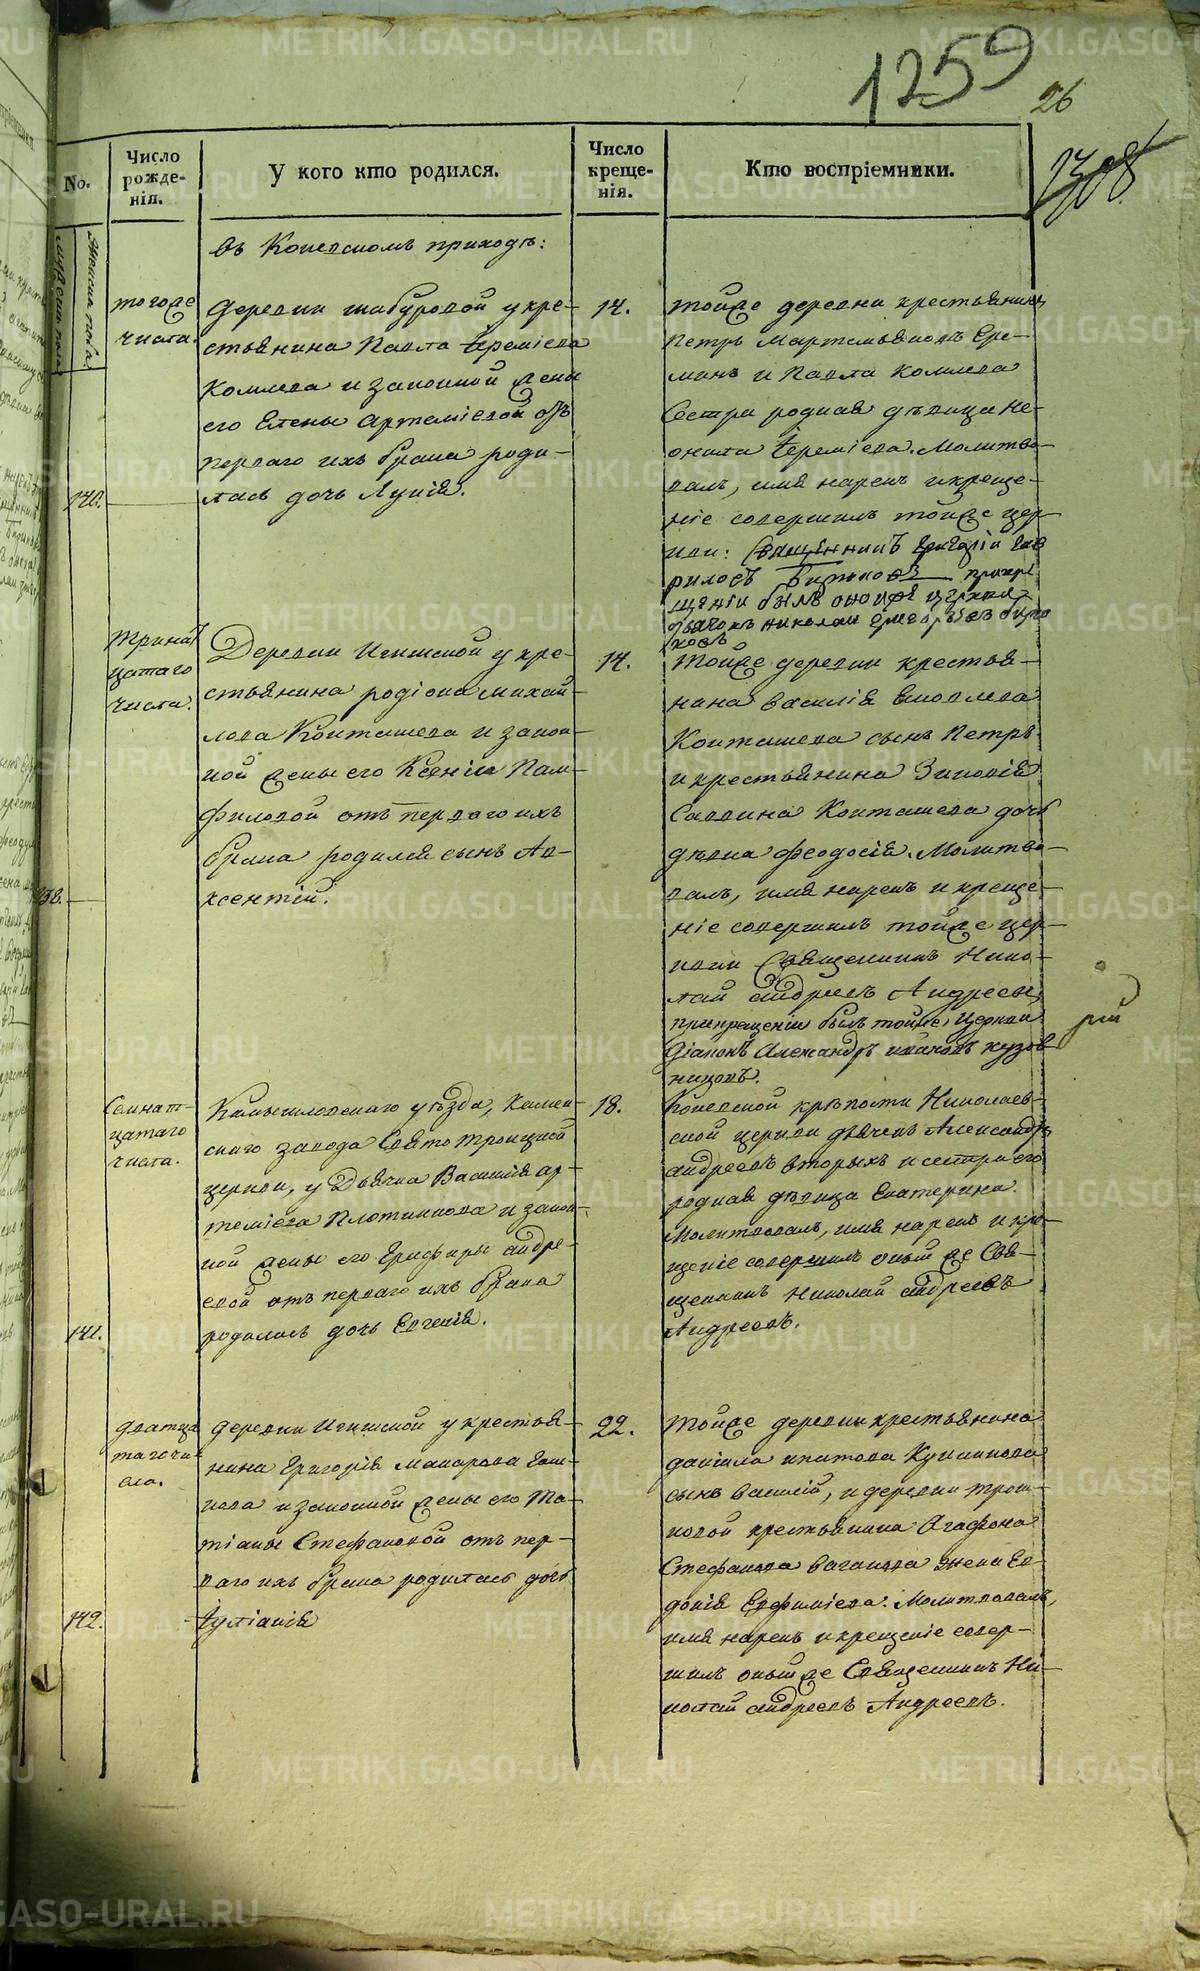 1259
26
1308
No.
Число рожде-нія.
У кого кто родился.
Число креще-нія.
Кто воспріемники.
Мужеска пола
Женска пола
въ Коневскомъ приходѣ:
140.
тогоже
числа.
Деревни Шабуровой у кре-
стьянина Павла Іереміева
Комлева и законной жены
его Елены Артеміевой отъ
перваго ихъ брака роди-
лась дочь Лукія.
14.
тойже деревни крестьянинъ
Петръ Мартемьяновъ Ере-
минъ и Павла Комлева
Сестра родная дѣвица Не-
онила Іереміева. Молитво-
валъ, имя нарекъ и креще-
ніе совершилъ тойже цер-
кви: Священникъ Григорій Гав
риловъ Бирюковъ прикре
щеніи былъ оной же церкви
дьячокъ Николай Григорьевъ Бирю
ковъ
138.
Тринат
цатаго
числа.
Деревни Игишской у кре-
стьянина Родіона Михай-
лова Конташева и закон-
ной жены его Ксеніи Пам-
филовой отъ перваго ихъ
брака родился сынъ Ав-
ксентій.
14.
Тойже деревни крестья-
нина Василія Яковлева
Конташева сынъ Петръ
и крестьянина Зиновія
Саввина Конташева дочь
дѣвка Феодосія. Молитво-
валъ, имя нарекъ и креще-
ніе совершилъ тойже цер-
кви Священникъ Нико-
лай Андреевъ Андреевъ,
прикрещеніи былъ тойже Церкви
Діаконъ Александръ Ивановъ Кузов
никовъ.
рій
141.
Семнат-
цатаго
числа.
Камышловскаго уѣзда, Камен-
скаго завода Святотроицкой
церкви, у Дьячка Василія Ар-
теміева Плотникова и закон-
ной жены его Глифиры Андре-
евой отъ перваго ихъ брака
родилась дочь Евгенія.
18.
Коневской крѣпости Николаев-
ской церкви дьячекъ Александръ
Андреевъ вторыхъ и сестра его
родная дѣвица Екатерина.
Молитвовалъ, имя нарекъ и кре-
щеніе совершилъ оный же Свя-
щенникъ Николай Андреевъ
Андреевъ.
142.
Дватца
тагочи
сла.
Деревни Игишской у крестья-
нина Григорія Макарова
и законной жены его Та-
тіаны Стефановой отъ пер-
ваго ихъ брака родилась дочь
Іуліанія
22.
Тойже деревни крестьянина
Даніила Ипатова
сынъ Василій, и деревни Трош-
ковой крестьянина Агафона
Стефанова Ваганова жена Ев-
докія Евфиміева. Молитвовалъ,
имя нарекъ и крещеніе совер-
шилъ оный же Священникъ Ни-
колай Андреевъ Андреевъ.
METRIKI.GASO-URAL.RU